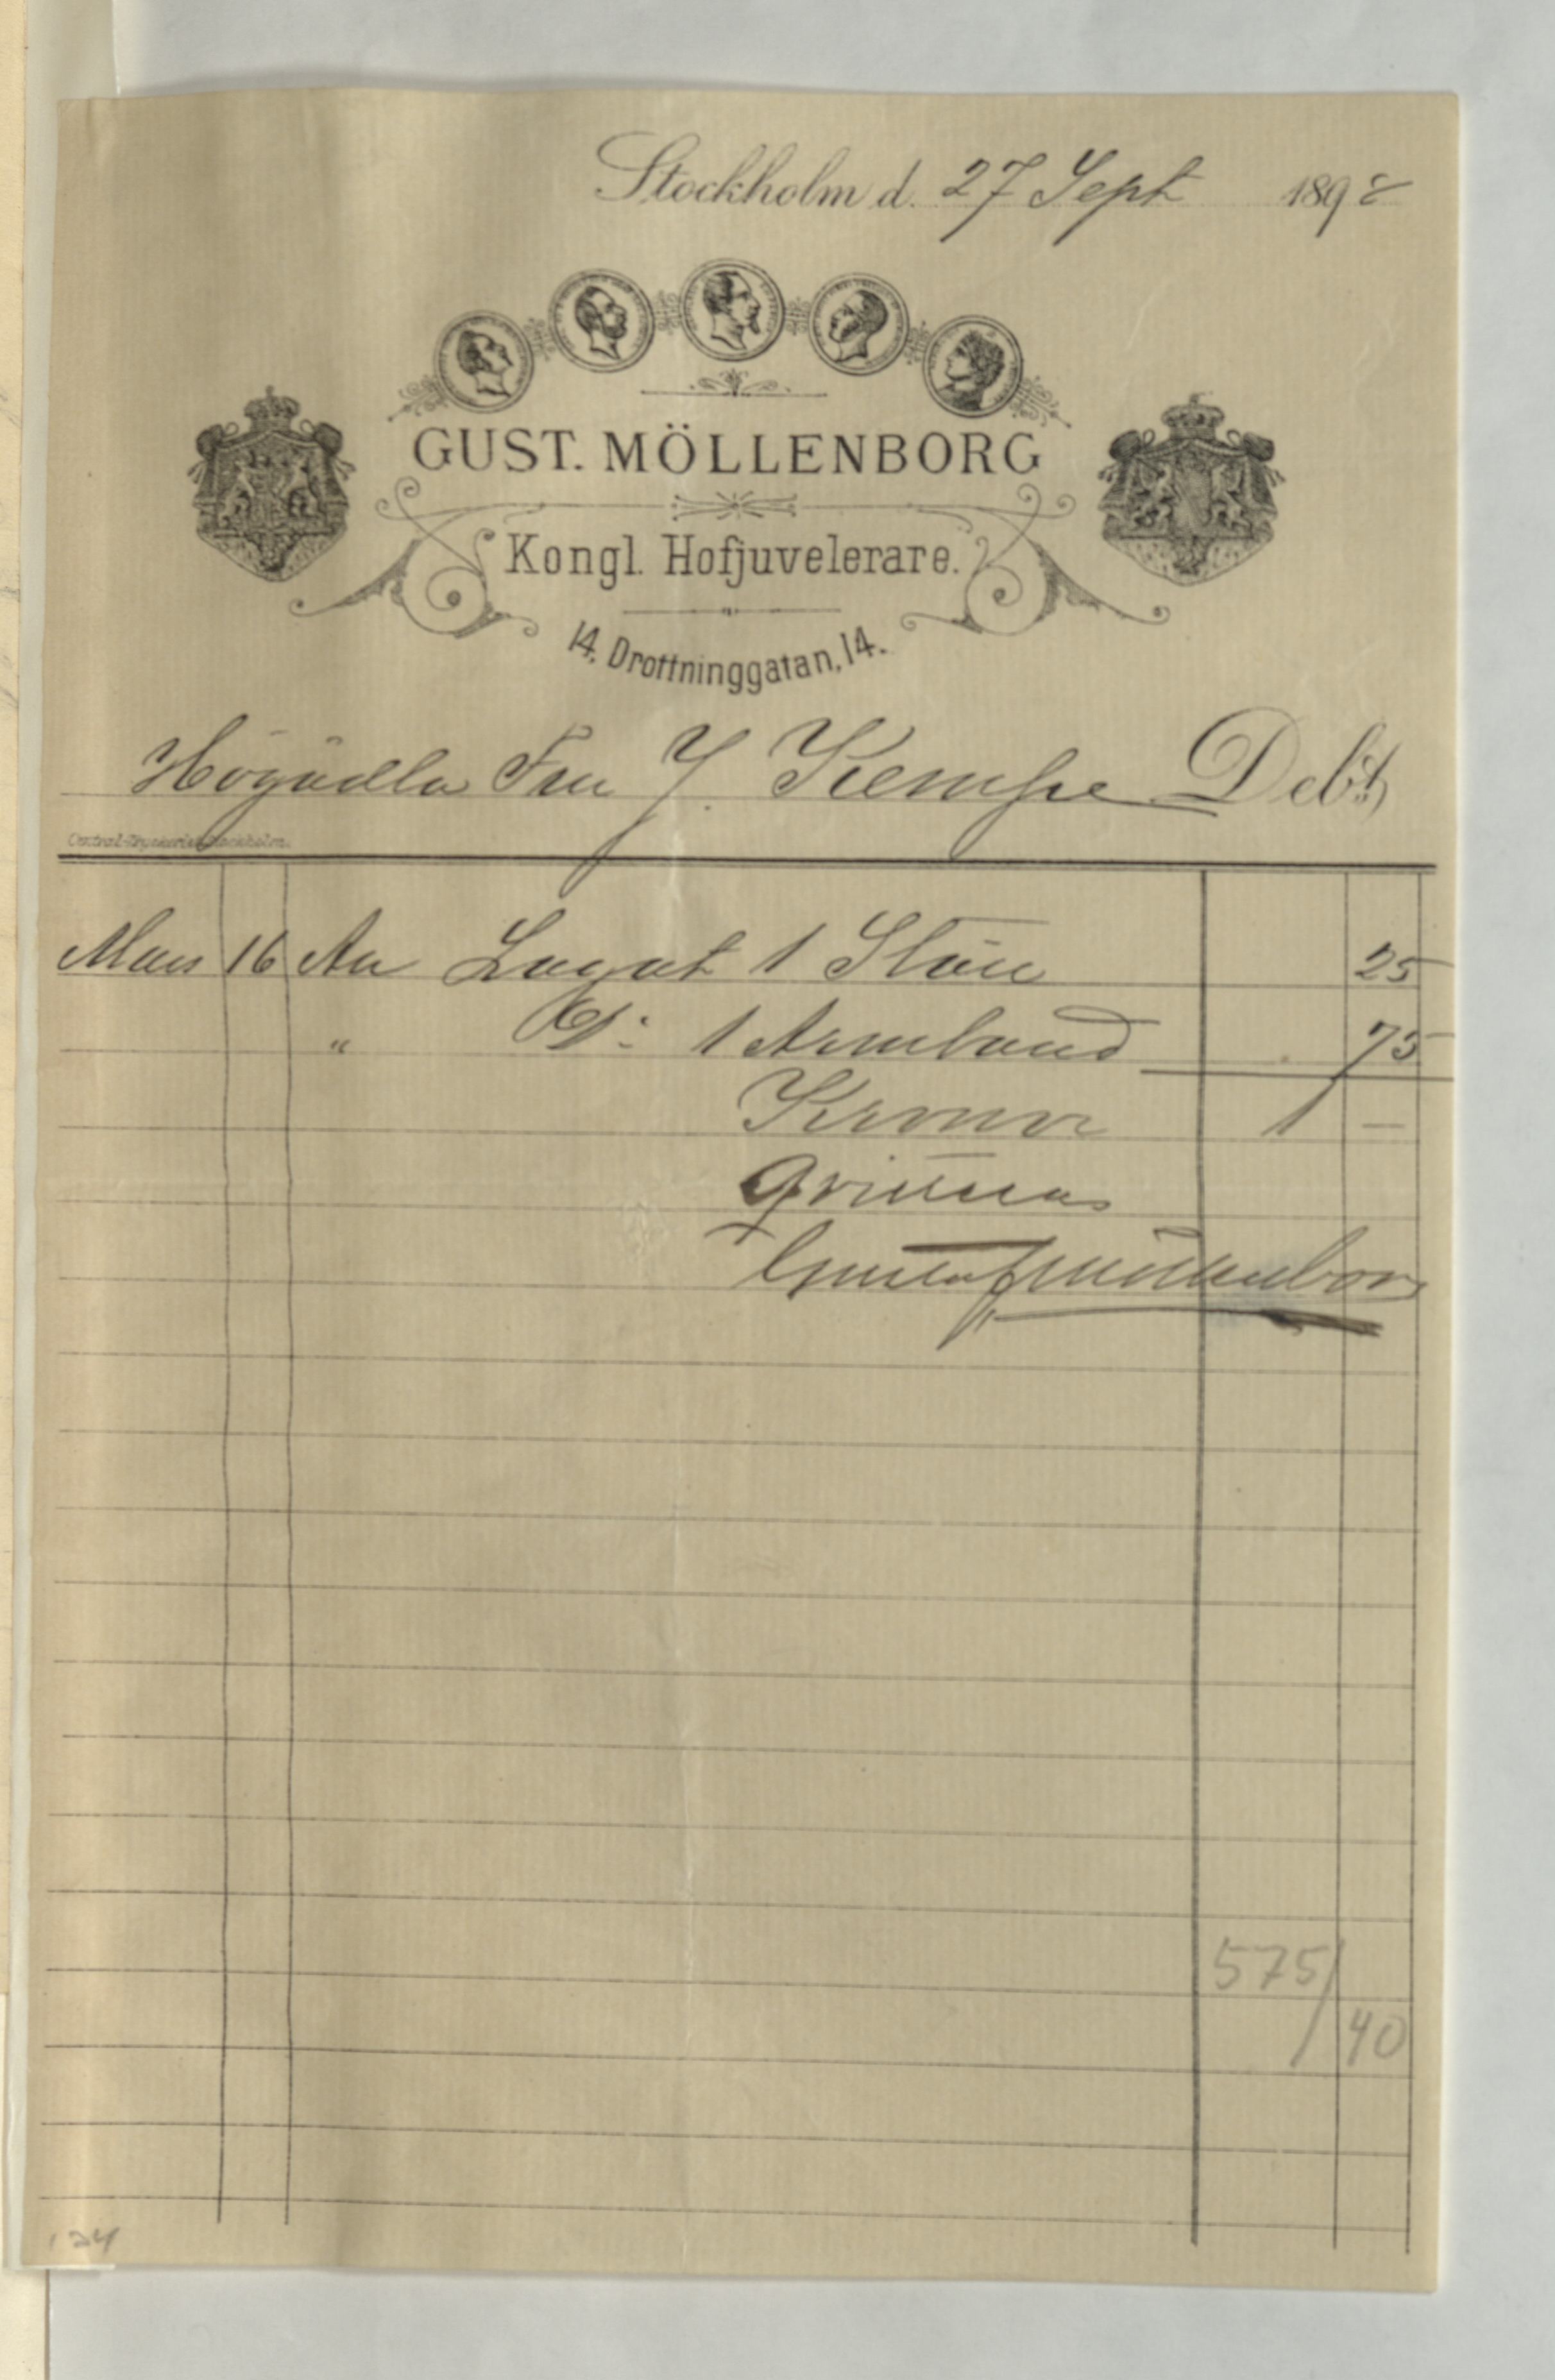 Stockholm d. 27 Sept 1898
GUST. MÖLLENBORG
Kongl. Hofjuvelerare.
14, Drottninggatan, 14.
Högädla Fru J. Kempe Debt,
Central-Tryckeriet, Stockholm.
Mars 16 An Lagat 1 25
" Do: 1 Armband 75
Kronor 1 —
Qvitteras
Gustaf Möllenborg
575/
40